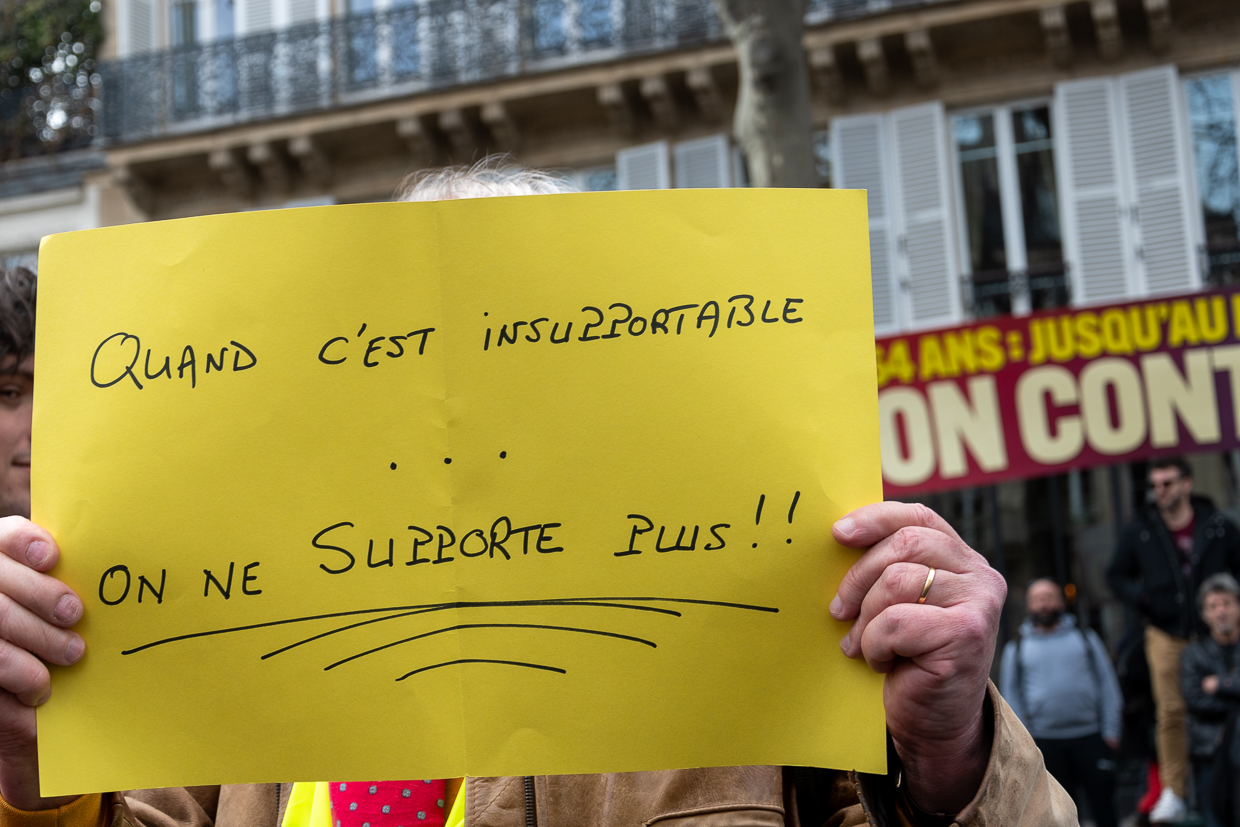 QUAND C'EST INSUPPORTABLE
. . .
ON NE SUPPORTE PLUS!!
64 ANS : JUSQU'AU
ON CONT